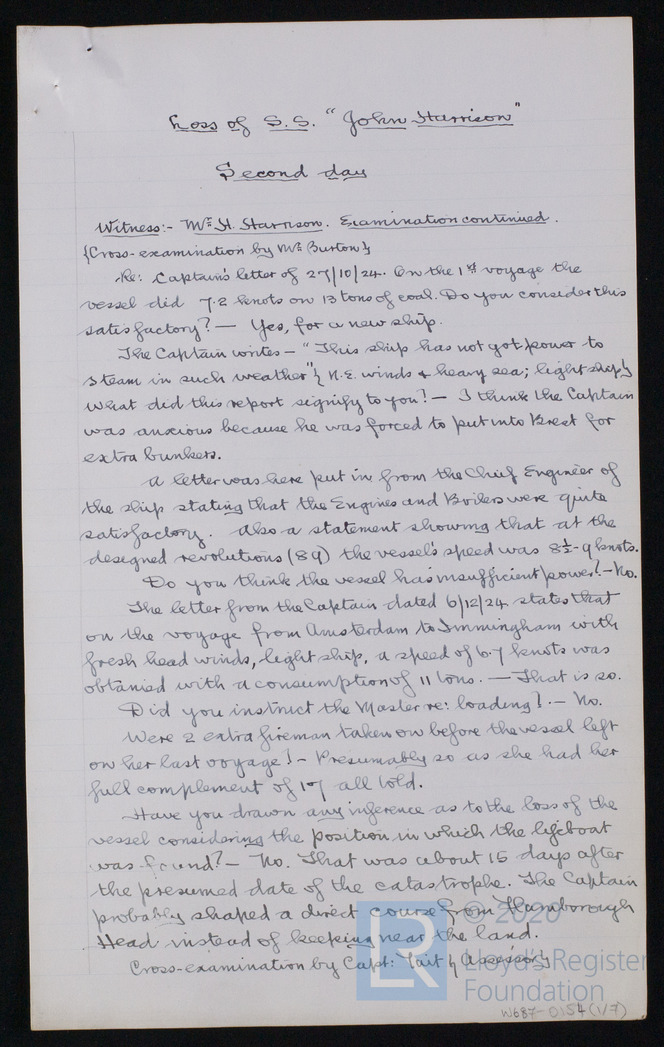 Loss of S.S. "John Harrison"
Second day
Witness:- Mr. H. Harrison. Examination continued.
{Cross-examination by Mr. Burton}
Re: Captain's letter of 27/10/24. On the 1st voyage the
vessel did 7.2 knots on 13 tons of coal. Do you consider this
satisfactory? — Yes, for a new ship.
The Captain writes — "This ship has not got power to
steam in such weather" { N.E. winds & heavy sea; light ship}
What did this report signify to you? — I think the Captain
was anxious because he was forced to put into Brest for
extra bunkers.
A letter was here put in from the Chief Engineer of
the ship stating that the Engines and Boilers were quite
satisfactory. Also a statement showing that at the
designed revolutions (89) the vessel's speed was 8½-9 knots.
Do you think the vessel has insufficient power? — No.
The letter from the Captain dated 6/12/24 states that
on the voyage from Amsterdam to Immingham with
fresh head winds, light ship, a speed of 6.7 knots was
obtained with a consumption of 11 tons. — That is so.
Did you instruct the Master re: loading? — No.
Were 2 extra fireman taken on before the vessel left
on her last voyage? — Presumably so as she had her
full complement of 17 all told.
Have you drawn any inference as to the loss of the
vessel considering the position in which the lifeboat
was found? — No. That was about 15 days after
the presumed date of the catastrophe. The Captain
probably shaped a direct course from Flamborough
Head instead of keeping near the land.
Cross-examination by Capt: Tait { Assessor}
© 2020
LR
Lloyd's Register
Foundation
W687-0154 (1/7)